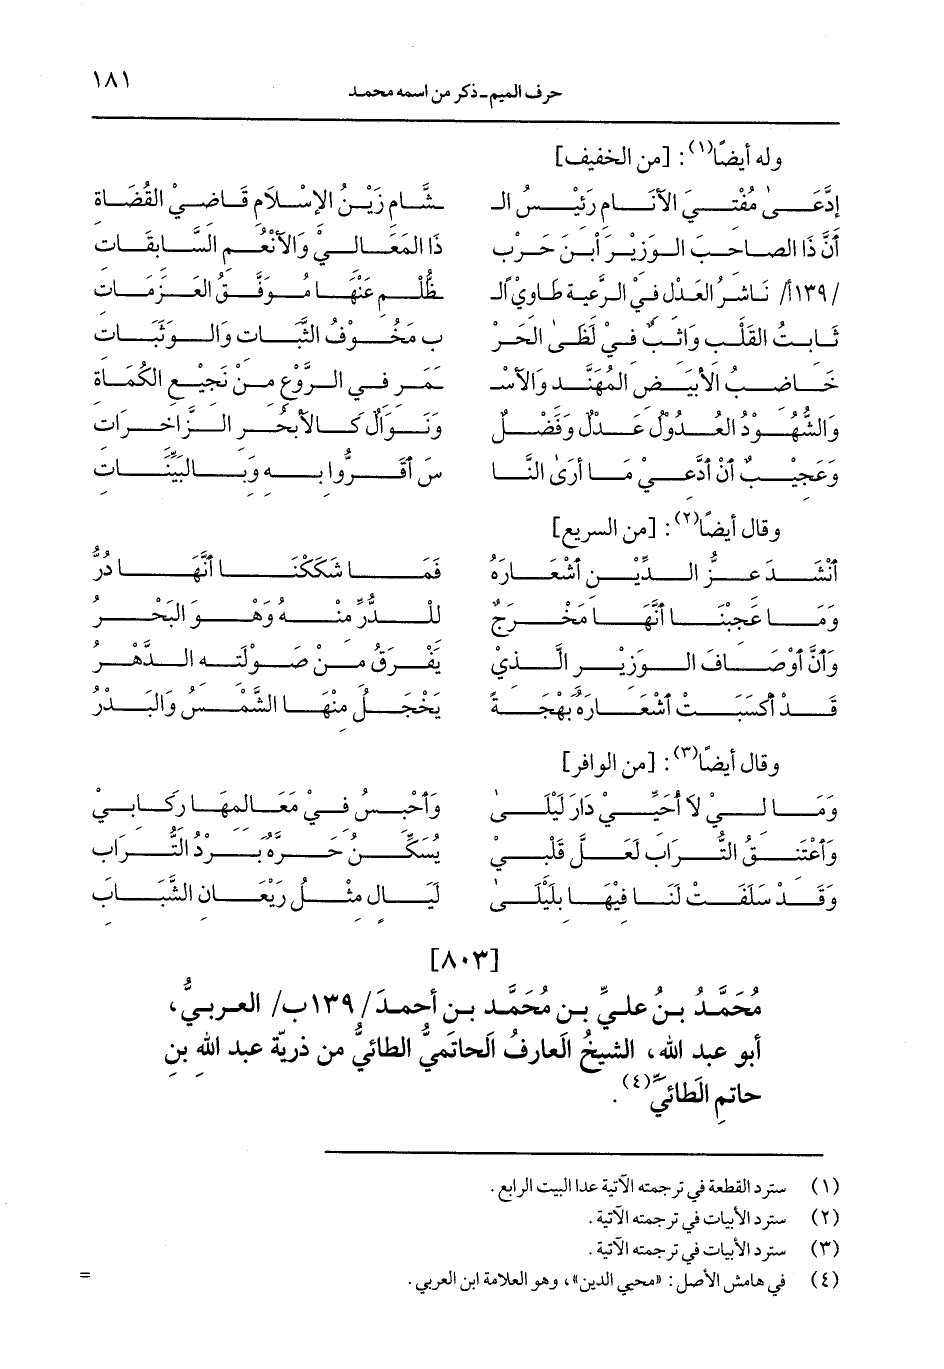 ١٨١
حرف الميم ـ ذكر من اسمه محمد
وله أيضًا(١): [من الخفيف]
إدَّعَىٰ مُفْتِي الأنَامِ رَئِيْسُ الـ ـشَّامِ زَيْنُ الإسْلَامِ قَاضِيْ القُضَاةِ
أنَّ ذَا الصاحبَ الوزِيْرَ أبنَ حَرْبٍ ذَا المَعَالِيْ وَالأنْعُمِ السَّابقَاتِ
/١٣٩أ/ نَاشرُ العَدْلِ فيْ الرَّعيةِ طَاوي ٱلـ ـظُّلْمِ عَنْهَا مُوَفَّقُ العَزمَاتِ
ثَابتُ القَلْبِ وَاثبٌ فيْ لَظَىٰ الحَرْ بِ مَخُوْفُ الثَّبَاتِ وَالوَثَبَاتِ
خَاضبُ الأبيَضِ المُهَنَّدِ وَالأسْـ ـمَرِ فيْ الرَّوْعِ مِنْ نَجِيْعِ الكُمَاةِ
وَالشُّهُوْدُ العُدُوْلُ عَدْلٌ وَفَضْلٌ وَنَوَالٌ كَالأبْحُرِ الزَّاخِرَاتِ
وَعَجِيْبٌ أنْ أدَّعيْ مَا أرَىٰ النَّا سَ أقَرُّوا بِهِ وَبالبَيِّنَاتِ
وقال أيضًا(٢): [من السريع]
أنْشَدَ عِزُّ الدِّيْنِ أشْعَارَهُ فَمَا شَكَكْنَا أنَّهَا دُرُّ
وَمَا عَجبْنَا أنَّهَا مَخْرَجٌ للْدُّرِّ منْهُ وَهْوَ البَحْرُ
وَأنَّ أوْصَافَ الوَزِيْرِ الَّذيْ يَفْرَقُ منْ صَوْلَتِهِ الدَّهْرُ
قَدْ أكسَبَتْ أشْعَارَهُ بَهْجَةً يَخْجَلُ مِنْهَا الشَّمْسُ وَالبَدْرُ
وقال أيضًا(٣): [من الوافر]
وَمَا ليْ لاَ أُحَيِّيْ دَارَ لَيْلَىٰ وَأحْبسُ فيْ مَعَالمهَا ركَابيْ
وَأعْتَنقُ التُّرَابَ لَعَلَّ قَلْبيْ يُسَكِّنُ حَرَّهُ بَرْدُ التُّرَابِ
وَقَدْ سَلَفَتْ لَنَا فيْهَا بلَيْلَىٰ لَيَالٍ مثْلُ رَيْعَانِ الشَّبَابِ
[٨٠٣]
مُحَمَّدُ بنُ عليِّ بنِ مُحَمَّدِ بنِ أحمدَ /١٣٩ب/ العربيُّ،
أبو عبد الله، الشيخُ العارفُ الحاتميُّ الطائيُّ من ذريةِ عبد الله بنِ
حاتمِ الطائيِّ(٤).
(١) سترد القطعة في ترجمته الآتية عدا البيت الرابع.
(٢) سترد الأبيات في ترجمته الآتية.
(٣) سترد الأبيات في ترجمته الآتية.
(٤) في هامش الأصل: «محيي الدين»، وهو العلامة ابن العربي. =